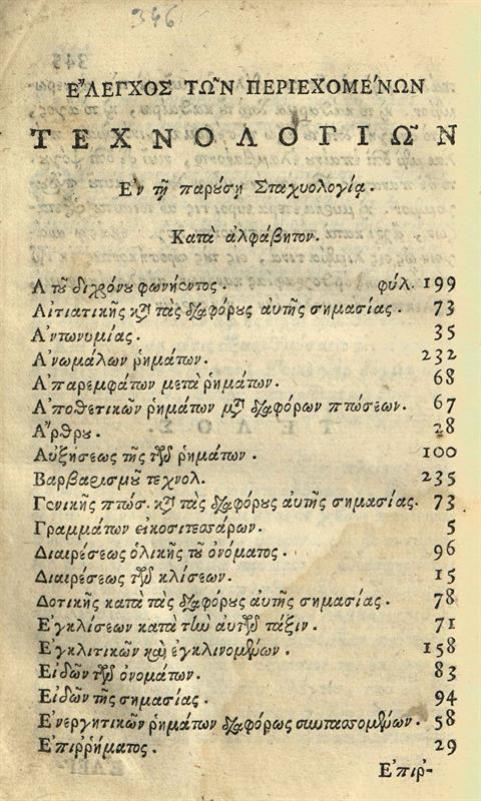 346
ἜΛΕΓΧΟΣ ΤΩ͂Ν ΠΕΡΙΕΧΟΜΈΝΩΝ
ΤΕΧΝΟΛΟΓΙΩ͂Ν
Εν τῇ παρούσῃ Σταχυολογίᾳ.
Κατὰ ἀλφάβητον.
Α τοῦ διχρόνου φωνήεντος. φύλ. 199
Αἰτιατικῆς κατὰ τὰς διαφόρους αὐτῆς σημασίας. 73
Ἀντωνυμίας. 35
Ἀνωμάλων ῥημάτων. 232
Ἀπαρεμφάτων μετὰ ῥημάτων. 68
Ἀποθετικῶν ῥημάτων μετὰ διαφόρων πτώσεων. 67
Ἄρθρου. 28
Αὐξήσεως τῆς τῶν ῥημάτων. 100
Βαρβαρισμοῦ τεχνολ. 235
Γενικῆς πτώσ. κατὰ τὰς διαφόρους αὐτῆς σημασίας. 73
Γραμμάτων εἰκοσιτεσσάρων. 5
Διαιρέσεως ὁλικῆς τοῦ ὀνόματος. 96
Διαιρέσεως τῶν κλίσεων. 15
Δοτικῆς κατὰ τὰς διαφόρους αὐτῆς σημασίας. 78
Ἐγκλίσεων κατὰ τὴν αὐτῶν τάξιν. 71
Ἐγκλιτικῶν καὶ ἐγκλινομένων. 158
Εἰδῶν τῶν ὀνομάτων. 83
Εἰδῶν τῆς σημασίας. 94
Ἐνεργητικῶν ῥημάτων διαφόρως συντασσομένων. 58
Ἐπιῤῥήματος. 29
Ἐπιῤ-